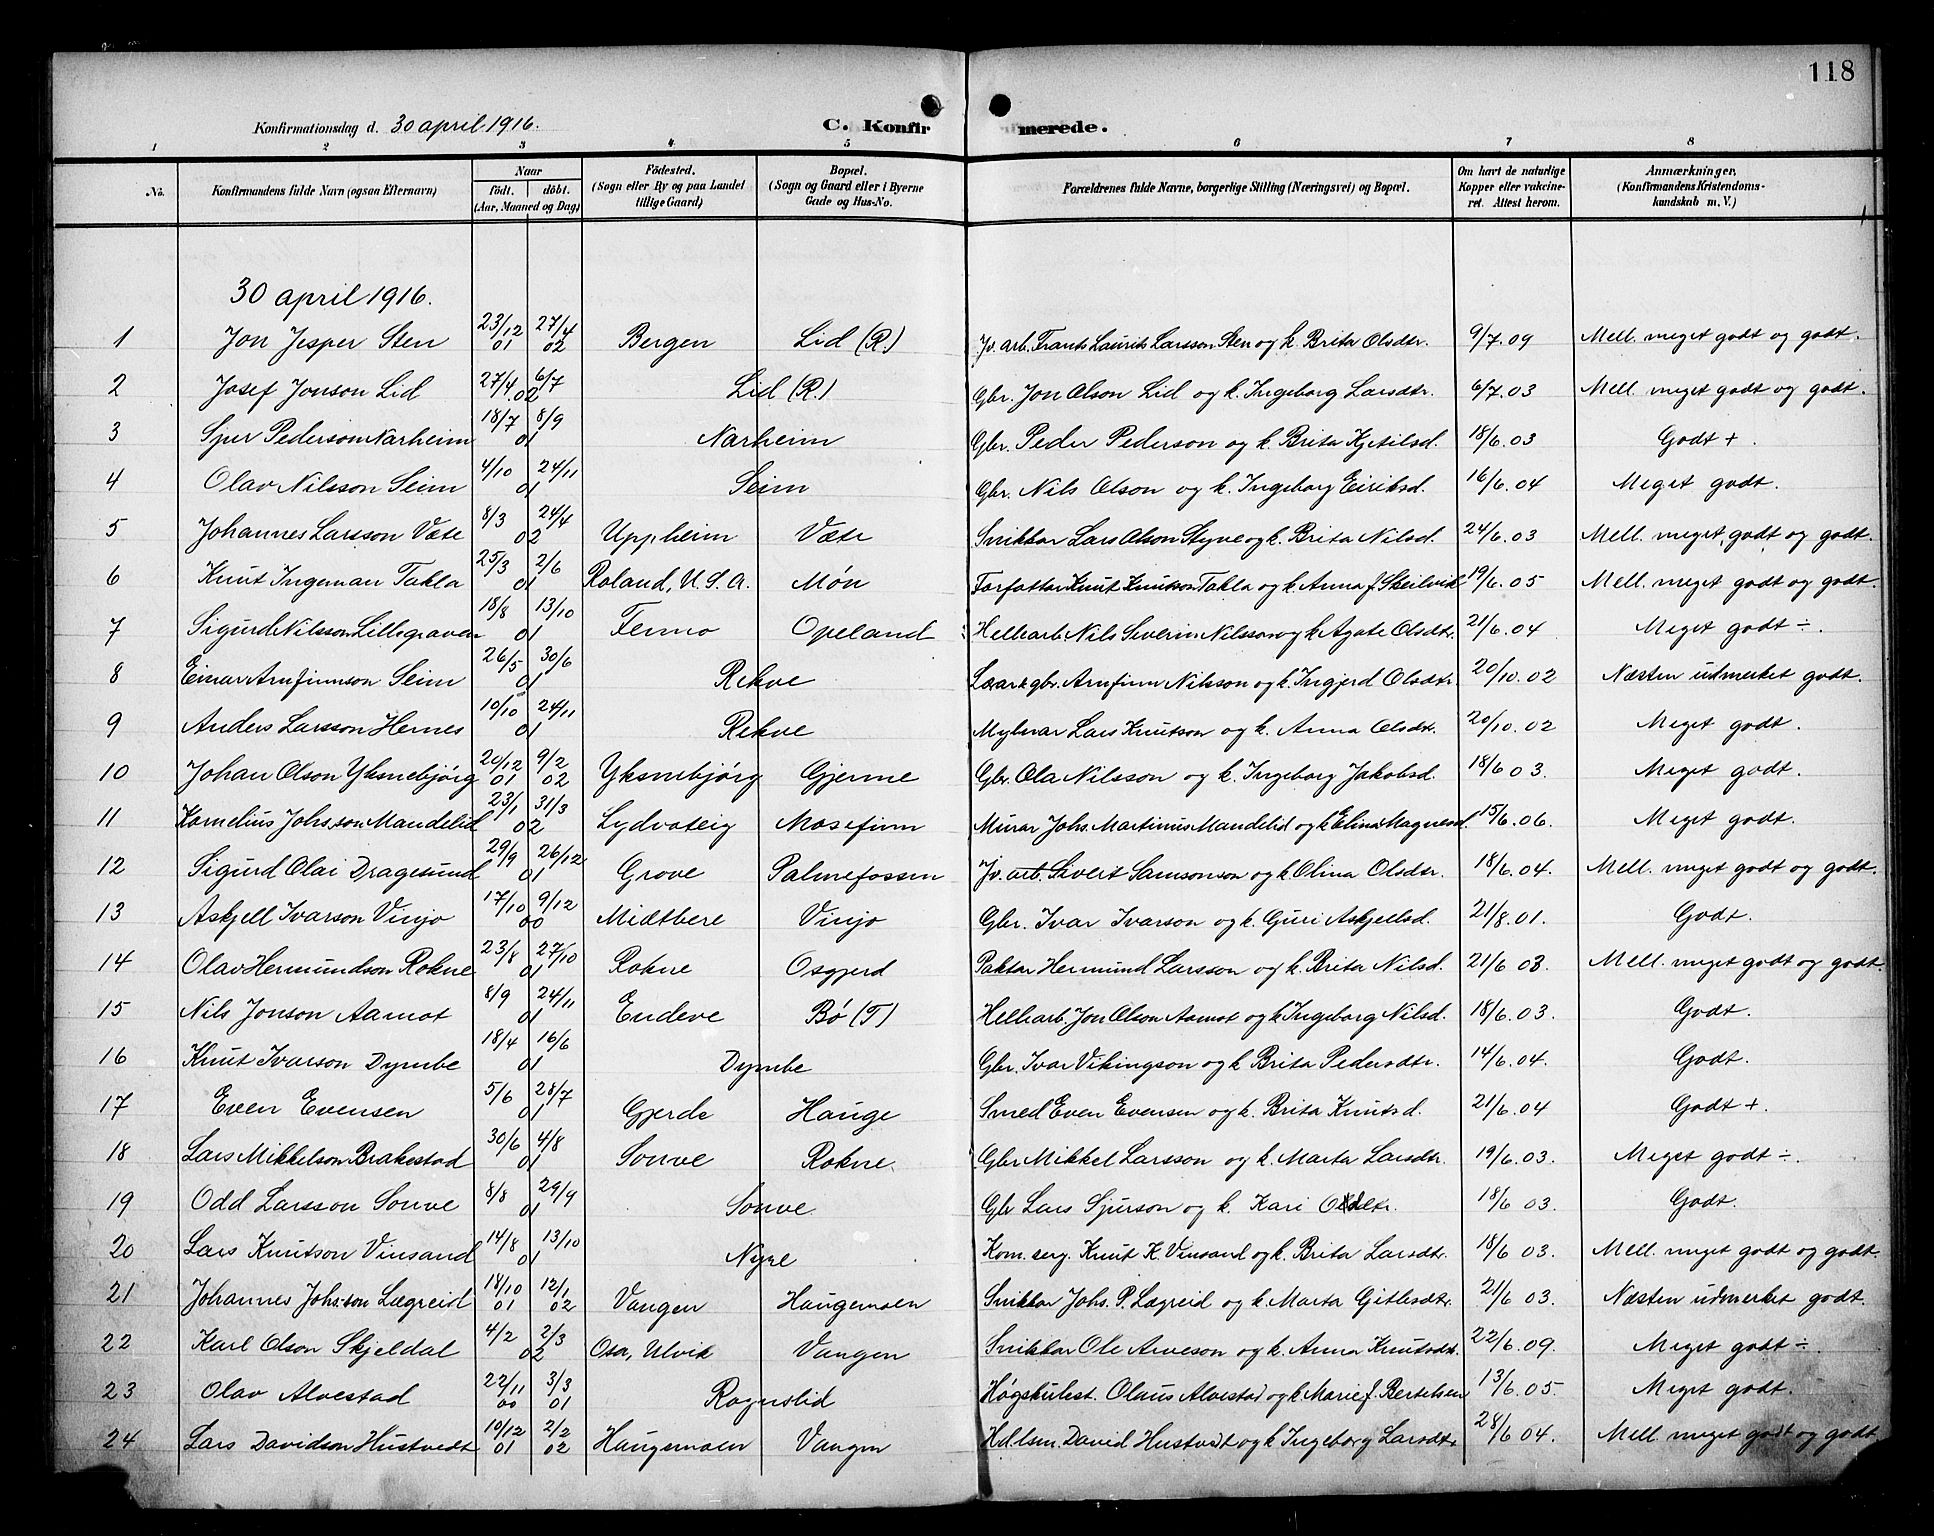 118
Konfirmationsdag d. 30 april 1916.
C. Konfirmerede.
1 2 3 4 5 6 7 8
No. | Konfirmandens fulde Navn (ogsaa Efternavn) | Naar født. døbt. (Aar, Maaned og Dag) | Födested. (Sogn eller By og paa Landet tillige Gaard) | Bopæl. (Sogn og Gaard eller i Byerne Gade og Hus-No. | Forældrenes fulde Navne, borgerlige Stilling (Næringsvei) og Bopæl. | Om havt de naturlige Kopper eller vakcineret. Attest herom. | Anmærkninger, (Konfirmandens Kristendomskundskab m. V.)
30 april 1916.
1 Jon Jesper Sten 23/12 01 27/4 02 Bergen Lid (R.) Jv. arb. Frants Laurits Larsson Sten og k. Brita Olsdtr. 9/7.09 Mell. meget godt og godt.
2 Josef Jonson Lid 27/4 6/7 02 Lid (R.) Gbr. Jon Olson Lid og k. Ingeborg Larsdtr. 6/7.03 Mell. meget godt og godt.
3 Sjur Pederson Narheim 18/7 8/9 01 Narheim Gbr. Peder Pederson og k. Brita Kjetilsd. 18/6.03 Godt +.
4 Olav Nilsson Seim 4/10 24/11 01 Seim Gbr. Nils Olson og k. Ingeborg Eiriksd. 16/6.04 Meget godt.
5 Johannes Larsson Væte 8/3 24/4 02 Uppheim Væte Snikkar Lars Olson Styve og k. Brita Nilsd. 24/6.03 Mell. meget godt og godt.
6 Knut Ingeman Takla 25/3 2/6 01 Roland, U.S.A. Møn Forfattar Knut Knutson Takla og k. Anna f. Skeilvik 19/6.05 Mell. meget godt og godt.
7 Sigurd Nilsson Lillegraven 18/8 13/10 01 Fenno Opeland Hellearb. Nils Severin Nilsson og k. Agate Olsdtr. 21/6.04 Meget godt ÷.
8 Einar Arnfinnson Seim 26/5 30/6 01 Rekve Lærar & gbr. Arnfinn Nilsson og k. Ingjerd Olsdtr. 20/10.02 Næsten utmerket godt.
9 Anders Larsson Hernes 10/10 24/11 01 Rekve Mylnar Lars Knutson og k. Anna Olsdtr. 20/10.02 Meget godt.
10 Johan Olson Yksnebjørg 20/12 01 9/2 02 Yksnebjørg Gjerme Gbr. Ola Nilsson og k. Ingeborg Jakobsd. 18/6 03. Meget godt.
11 Kornelius Johs.son Mandelid 23/1 31/3 02 Lydvateig Mosefinn Murar Johs. Martinus Mandelid og k Elina Magnesd. 15/6.06. Meget godt.
12 Sigurd Olai Dragesund 29/9 26/12 01 Grove Palmefossen Jv. arb. Sivert Samsonson og k. Olina Olsdtr. 18/6.04. Mell. meget godt og godt.
13 Askjell Ivarson Vinjo 17/10 9/12 00 Midtbere Vinjo Gbr. Ivar Ivarson og k. Guri Askjellsd. 21/8.01. Godt.
14 Olav Hermundson Rokne 23/8 27/10 01 Rokne Osgjerd Paktar Hermund Larsson og k. Brita Nilsd. 21/6 03. Mell. meget godt og godt.
15 Nils Jonson Aamot 8/9 24/11 01 Endeve Bø (T) Hellearb. Jon Olson Aamot og k. Ingeborg Nilsd. 18/6.03. Godt.
16 Knut Ivarson Dymbe 18/4 16/6 01 Dymbe Gbr. Ivar Vikingson og k. Brita Pedersdtr. 14/6.04. Godt.
17 Even Evensen 5/6 28/7 01 Gjerde Hauge Smed Even Evensen og k. Brita Knutsd. 21/6.04 Godt +.
18 Lars Mikkelson Brakestad 30/6 4/8 01 Sonve Rokne. Gbr Mikkel Larsson og k. Marta Larsdtr. 19/6.03. Meget godt ÷.
19 Odd Larsson Sonve 8/8 29/9 01 Sonve Gbr Lars Sjurson og k. Kari Oddsdtr. 18/6 03. Godt.
20 Lars Knutson Vinsand 14/8 13/10 01 Nyre Kom. serg. Knut K. Vinsand og k. Brita Larsdtr. 18/6 03. Mell. meget godt og godt.
21 Johannes Johs.son Lægreid 18/10 01 12/1 02 Vangen Haugamoen Snikkar Johs. P. Lægreid og k. Marta Gitlesdtr. 21/6 03. Næsten utmerket godt.
22 Karl Olson Skjeldal 4/2 2/3 02 Osa, Ulvik Vangen Snikkar Ole Arveson og k. Anna Knutsdtr. 22/6.09. Meget godt ÷.
23 Olav Alvestad 22/11 00 3/3 01 Rognslid Høgskulest. Olaus Alvestad og k. Marie f. Bertelsen 13/6.05. Meget godt.
24 Lars Davidson Hustvedt 10/12 01 2/2 02 Haugamoen Vangen Hdlsm. David Hustvedt og k Ingeborg Larsdtr 28/6 04. Mell. meget godt og godt